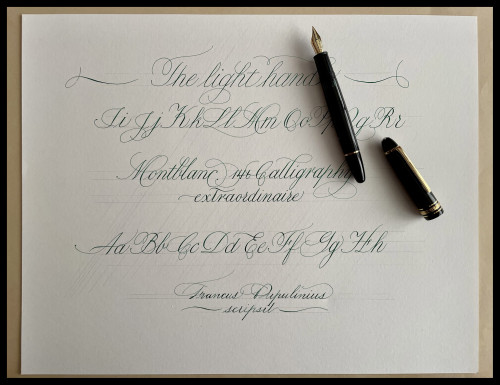 The light hand
Ii Jj Kk Ll Mm Oo Pp Qq Rr
Montblanc 146 Calligraphy
extraordinaire
Aa Bb Cc Dd Ee Ff Gg Hh
Francus
scripsit